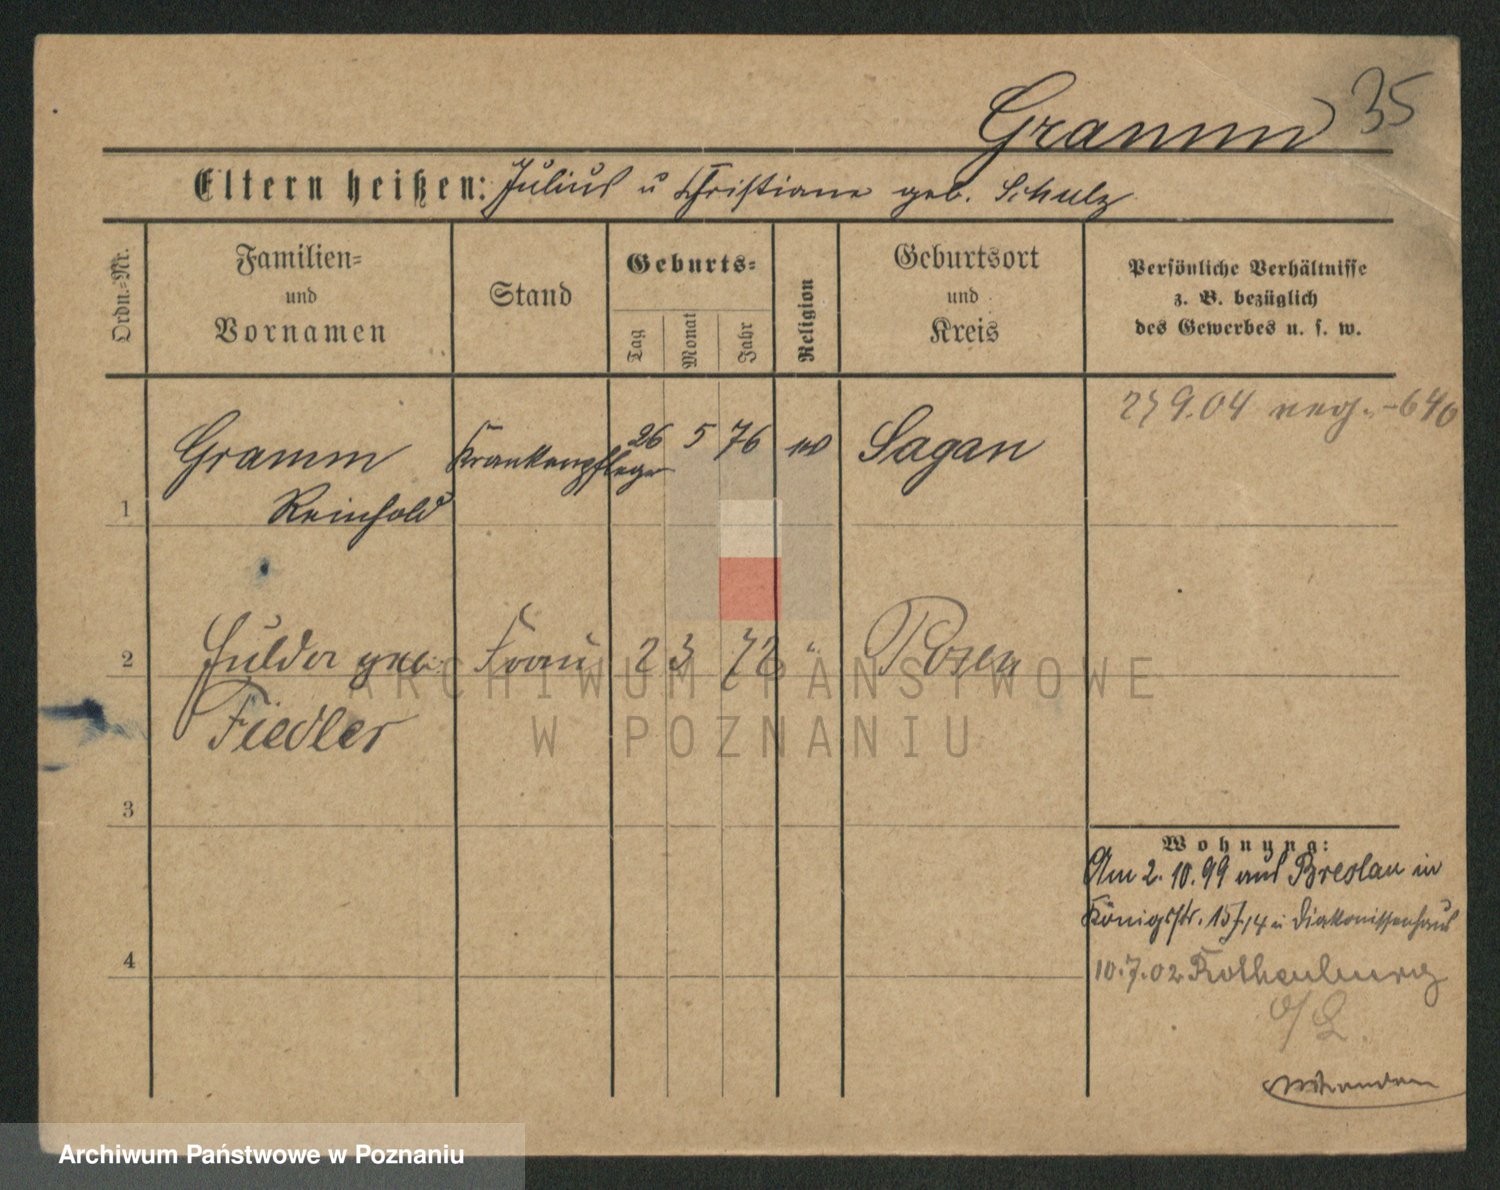 Gramm 35
Eltern heißen: Julius u Christiane geb. Schulz
Ordn.=Nr.
Familien=
und
Vornamen
Stand
Geburts=
Tag
Monat
Jahr
Religion
Geburtsort
und
Kreis
Persönliche Verhältnisse
z. B. bezüglich
des Gewerbes u. s. w.
9.04 -640
1 Gramm Krankenpfleger 26 5 76 Sagan
Reinhold
2 Hulda geb. Frau 2 3 72 " Posen
Fiedler
3
4
Wohnung:
Am 2. 10. 99 aus Breslau in
Königstr. 15 Diakonissenhaus
10.7.02 Rothenburg
o/L.
ARCHIWUM PAŃSTWOWE
W POZNANIU
Archiwum Państwowe w Poznaniu